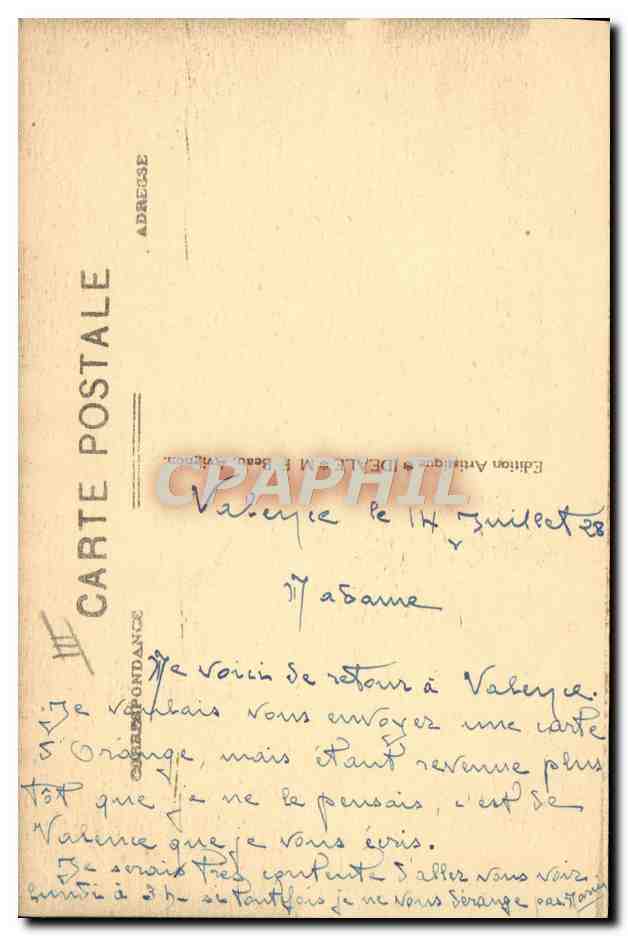 CARTE POSTALE
CORRESPONDANCE
ADRESSE
Edition Artistique "IDEALE" M. F. Beau, Avignon.
CPAPHIL
III
Valence le 14 Juillet 28
Madame
Me voici de retour à Valence.
Je voulais vous envoyer une carte
d'Orange, mais étant revenue plus
tôt que je ne le pensais, c'est de
Valence que je vous écris.
Je serais très contente d'aller vous voir
lundi à 3 h - si toutefois je ne vous dérange pas